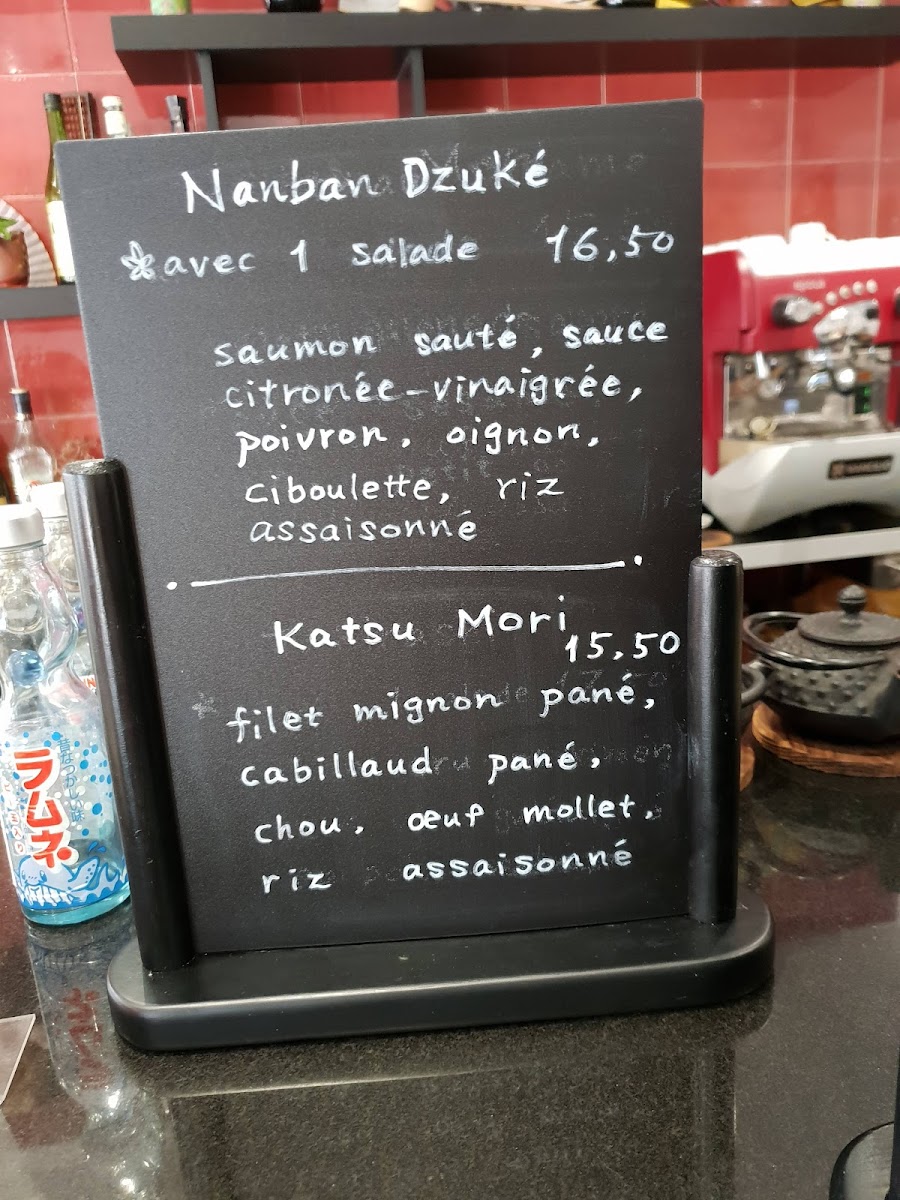 Nanban Dzuké
*avec 1 salade 16,50
saumon sauté, sauce
citronée-vinaigrée,
poivron, oignon,
ciboulette, riz
assaisonné
Katsu Mori
15,50
filet mignon pané,
cabillaud pané,
chou, œuf mollet,
riz assaisonné
ラムネ